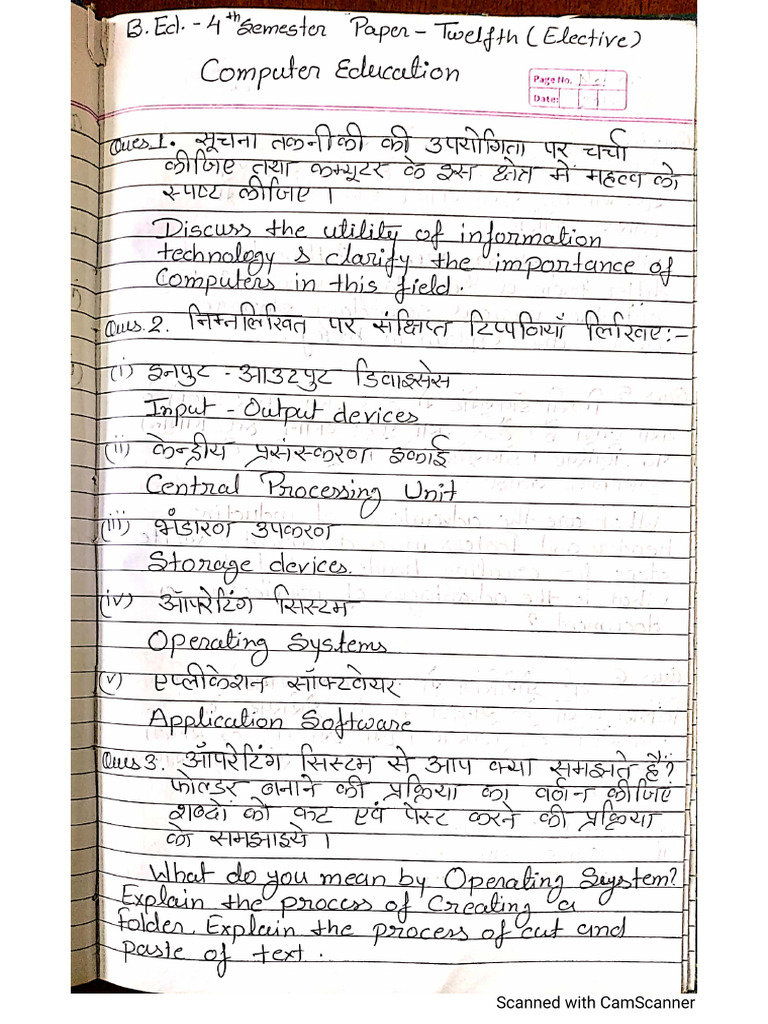 B.Ed. - 4th Semester Paper - Twelfth (Elective)
Computer Education
Page No.
Date:
Ques 1. सूचना तकनीकी की उपयोगिता पर चर्चा
कीजिए तथा कम्प्यूटर के इस क्षेत्र में महत्व को
स्पष्ट कीजिए ।
Discuss the utility of information
technology & clarify the importance of
Computers in this field.
Ques. 2. निम्नलिखित पर संक्षिप्त टिप्पणियाँ लिखिए:-
(i) इनपुट - आउटपुट डिवाइसेस
Input - Output devices
(ii) केन्द्रीय प्रसंस्करण इकाई
Central Processing Unit
(iii) भंडारण उपकरण
Storage devices.
(iv) ऑपरेटिंग सिस्टम
Operating Systems
(v) एप्लीकेशन सॉफ्टवेयर
Application Software
Ques 3. ऑपरेटिंग सिस्टम से आप क्या समझते हैं?
फोल्डर बनाने की प्रक्रिया का वर्णन कीजिएं
शब्दों को कट एवं पेस्ट करने की प्रक्रिया
के समझाइये ।
What do you mean by Operating System?
Explain the process of Creating a
folder. Explain the process of cut and
paste of text.
Scanned with CamScanner